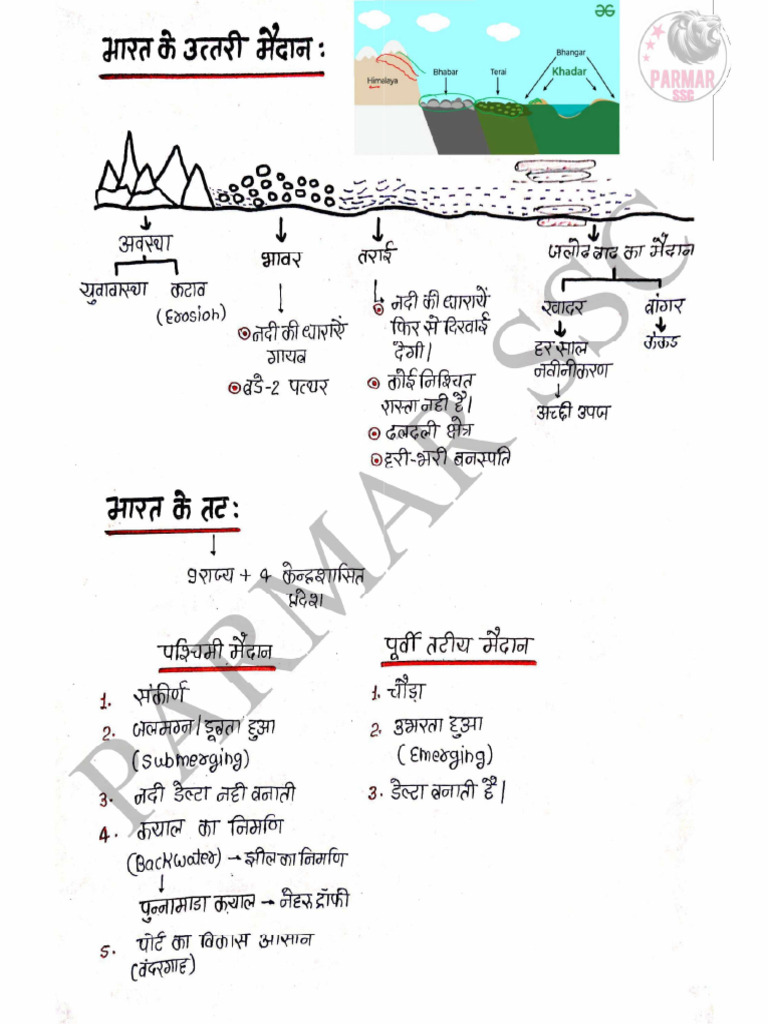 भारत के उत्तरी मैदान :
Himalaya
Bhabar
Terai
Bhangar
Khadar
PARMAR
SSC
अवस्था
युवावास्था
कटाव
(Erosion)
भावर
नदी की धारायें
गायब
बडे-2 पत्थर
तराई
नदी की धारायें
फिर से दिखाई
देंगी।
कोई निश्चित
रास्ता नही है।
दलदली क्षेत्र
हरी-भरी बनस्पति
जलोढ बाढ का मैदान
खादर
हर साल
नवीनीकरण
अच्छी उपज
बांगर
कंकड
भारत के तट :
9राज्य + 4 केन्द्रशासित
प्रदेश
पश्चिमी मैदान
1. संकीर्ण
2. जलमग्न/डूबता हुआ
(Submerging)
3. नदी डेल्टा नही बनाती
4. कयाल का निर्माण
(Backwater) → झील का निर्माण
पुन्नामाडा कयाल → नेहरु ट्रॉफी
5. पोर्ट का विकास आसान
(बंदरगाह)
पूर्वी तटीय मैदान
1. चौड़ा
2. उभरता हुआ
(Emerging)
3. डेल्टा बनाती है।
PARMAR SSC